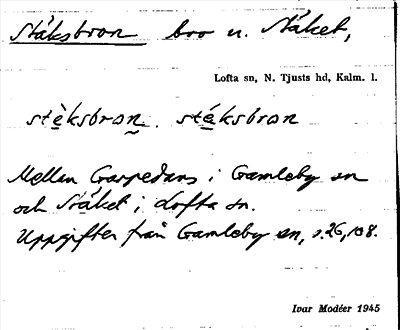 Stäksbron bro n. Stäket,
Lofta sn, N. Tjusts hd, Kalm. l.
stèksbron. stéksbron
Mellan Garpedans i Gamleby sn
och Stäket i Lofta sn.
Uppgifter från Gamleby sn, s. 26, 108.
Ivar Modéer 1945